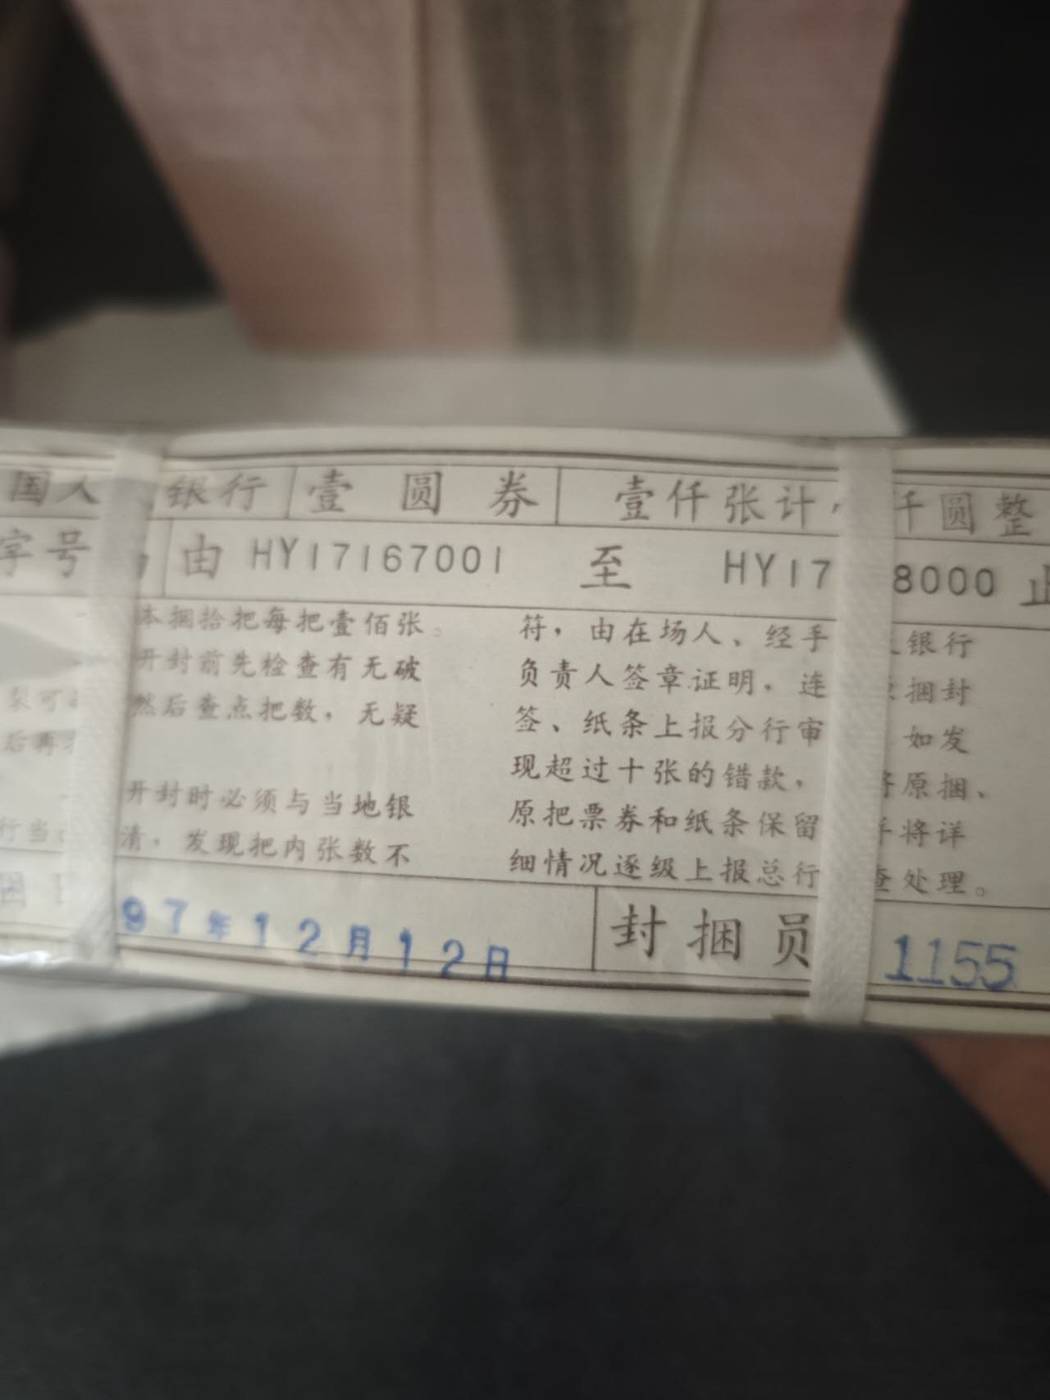 国人 银行 壹圆券 壹仟张计 仟圆整
字号 由 HY17167001 至 HY17 8000 止
本捆拾把每把壹佰张。
开封前先检查有无破
裂可
然后查点把数,无疑
后再
开封时必须与当地银
行当
清,发现把内张数不
符,由在场人、经手 银行
负责人签章证明,连 捆封
签、纸条上报分行审 如发
现超过十张的错款, 将原捆、
原把票券和纸条保留 将详
细情况逐级上报总行 查处理。
97年12月12日 封捆员 1155